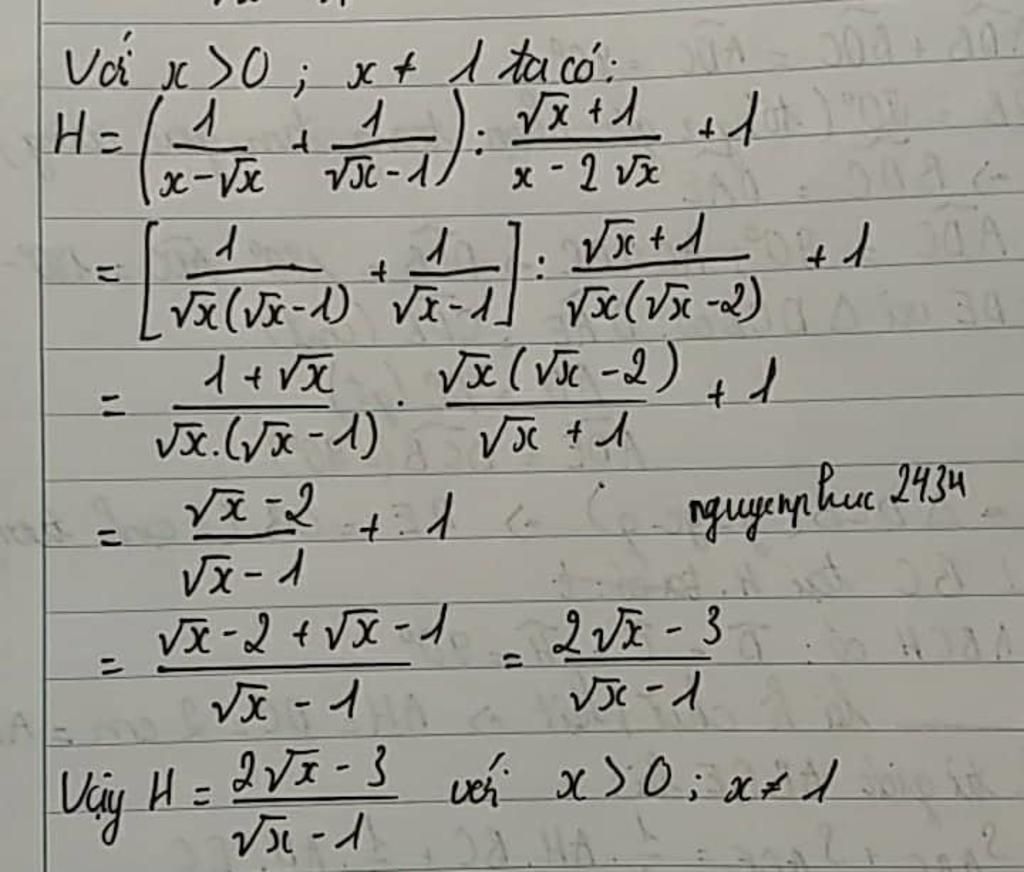 Với x > 0 ; x ≠ 1 ta có:
H = (1/(x - √x) + 1/(√x - 1)) : (√x + 1)/(x - 2√x) + 1
= [1/(√x(√x - 1)) + 1/(√x - 1)] : (√x + 1)/(√x(√x - 2)) + 1
= (1 + √x)/(√x.(√x - 1)) . (√x(√x - 2))/(√x + 1) + 1
= (√x - 2)/(√x - 1) + 1
nguyenphuc 2434
= (√x - 2 + √x - 1)/(√x - 1) = (2√x - 3)/(√x - 1)
Vậy H = (2√x - 3)/(√x - 1) với x > 0 ; x ≠ 1